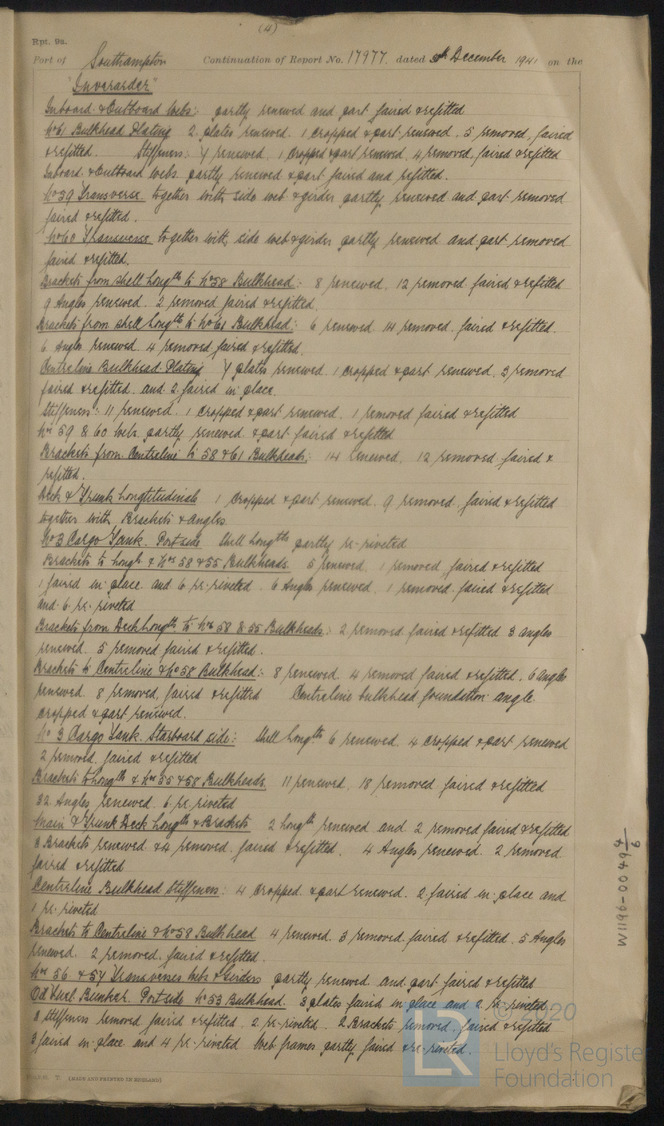 (4)
Rpt. 9a.
Port of Southampton Continuation of Report No. 17977. dated 30th December 1941 on the
"Inverarder"
Inboard & Outboard Webs: partly renewed and part faired & refitted
No 61 Bulkhead Plating 2 plates renewed. 1 cropped & part renewed. 5 removed, faired
& refitted. Stiffeners: 7 renewed, 1 cropped & part renewed, 4 removed, faired & refitted
Inboard & Outboard Webs partly renewed & part faired and refitted.
No 59 Transverse together with side web & girder partly renewed and part removed
faired & refitted.
No 60 Transverse together with side web & girder partly renewed and part removed
faired & refitted.
Brackets from shell Longtls to No 58 Bulkhead: 8 renewed. 12 removed faired & refitted
9 Angles renewed. 2 removed faired & refitted.
Brackets from shell Longtls to No 61 Bulkhead: 6 renewed 14 removed faired & refitted.
6 Angles renewed 4 removed faired & refitted.
Centreline Bulkhead Plating 7 plates renewed. 1 cropped & part renewed. 3 removed
faired & refitted. and 2 faired in place.
Stiffeners: 11 renewed. 1 cropped & part renewed. 1 removed faired & refitted
Nos 59 & 60 Webs partly renewed & part faired & refitted
Brackets from Centreline to 58 & 61 Bulkheads: 14 renewed. 12 removed faired &
refitted.
Deck & Trunk Longtitudinals 1 cropped & part renewed. 9 removed, faired & refitted
together with Brackets & Angles
No 3 Cargo Tank. Portside Longtls partly re-riveted
Brackets to Longls & Nos 58 & 55 Bulkheads. 5 renewed, 1 removed, faired & refitted
1 faired in place and 6 re-riveted. 6 Angles renewed, 1 removed, faired & refitted
and 6 re-riveted
Brackets from Deck Longtls to Nos 58 & 55 Bulkheads: 2 removed faired & refitted 3 angles
renewed. 5 removed faired & refitted.
Brackets to Centreline & No 58 Bulkhead: 8 renewed. 4 removed, faired & refitted. 6 Angles
renewed. 8 removed, faired & refitted Centreline bulkhead foundation angle
cropped & part renewed.
No 3 Cargo Tank. Starboard side: Longtls 6 renewed. 4 cropped & part renewed
2 removed, faired & refitted
Brackets to Longtls & Nos 55 & 58 Bulkheads. 11 renewed, 18 removed faired & refitted
22 Angles renewed. 6 re-riveted
Main & Trunk Deck Longtls & Brackets 2 longls renewed and 2 removed faired & refitted
Brackets renewed & 4 removed, faired & refitted. 4 Angles renewed. 2 removed
faired & refitted
Centreline Bulkhead Stiffeners: 4 cropped & part renewed. 2 faired in place and
1 re-riveted
Brackets to Centreline & No 58 Bulkhead 4 renewed. 3 removed, faired & refitted. 5 Angles
renewed. 2 removed, faired & refitted.
Nos 56 & 57 Transverses Webs & Girders partly renewed and part faired & refitted
Oil Fuel Bunker. Portside No 53 Bulkhead. 3 plates faired in place and 2 re-riveted
Stiffeners removed faired & refitted, 2 re-riveted. 2 Brackets removed, faired & refitted
3 faired in place and 4 re-riveted Web frames partly faired & re-riveted.
(MADE AND PRINTED IN ENGLAND)
W1196-0049 4/6
© 2020
LR
Lloyd's Register
Foundation